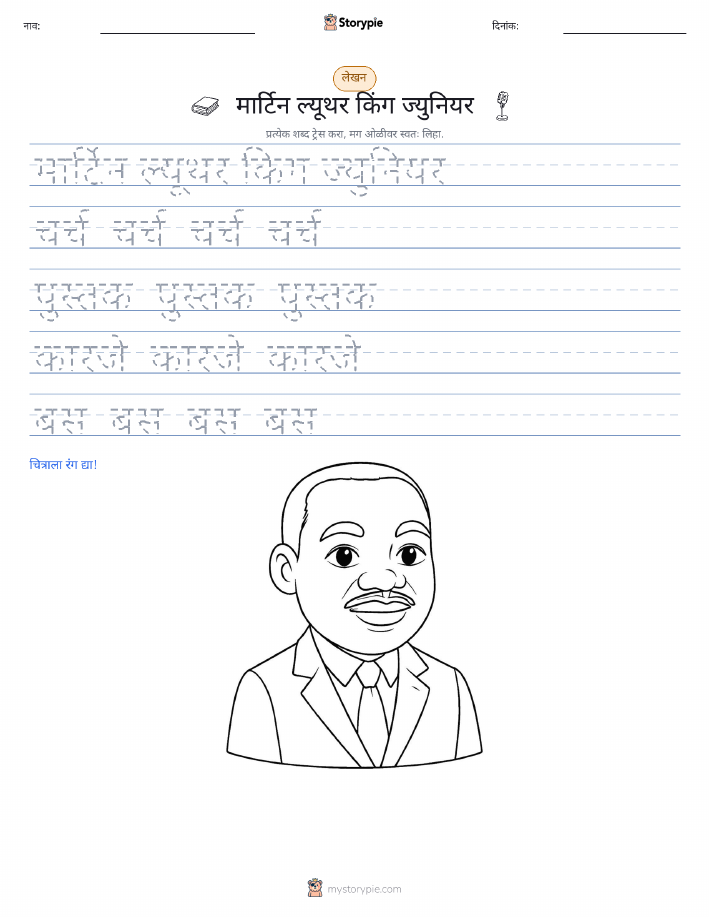 नाव:
Storypie
दिनांक:
लेखन
मार्टिन ल्यूथर किंग ज्युनियर
प्रत्येक शब्द ट्रेस करा, मग ओळीवर स्वतः लिहा.
मार्टिन ल्यूथर किंग ज्युनियर
चर्च चर्च चर्च चर्च
पुस्तक पुस्तक पुस्तक
कारजे कारजे कारजे
बस बस बस बस
चित्राला रंग द्या!
mystorypie.com